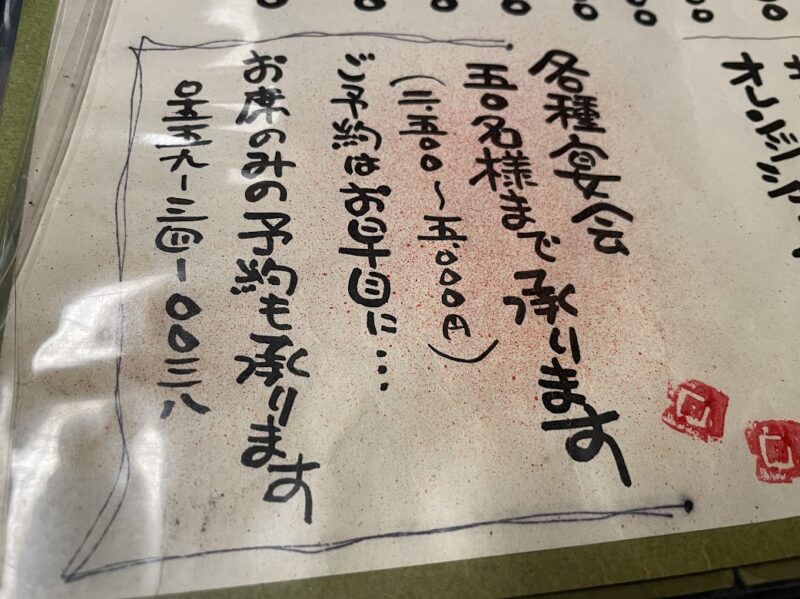 オレンジジ
各種宴会
五〇名様まで承ります
(二.五〇〇〜五.〇〇〇円)
ご予約はお早目に…
お席のみの予約も承ります
〇五五九-三四-〇〇三八